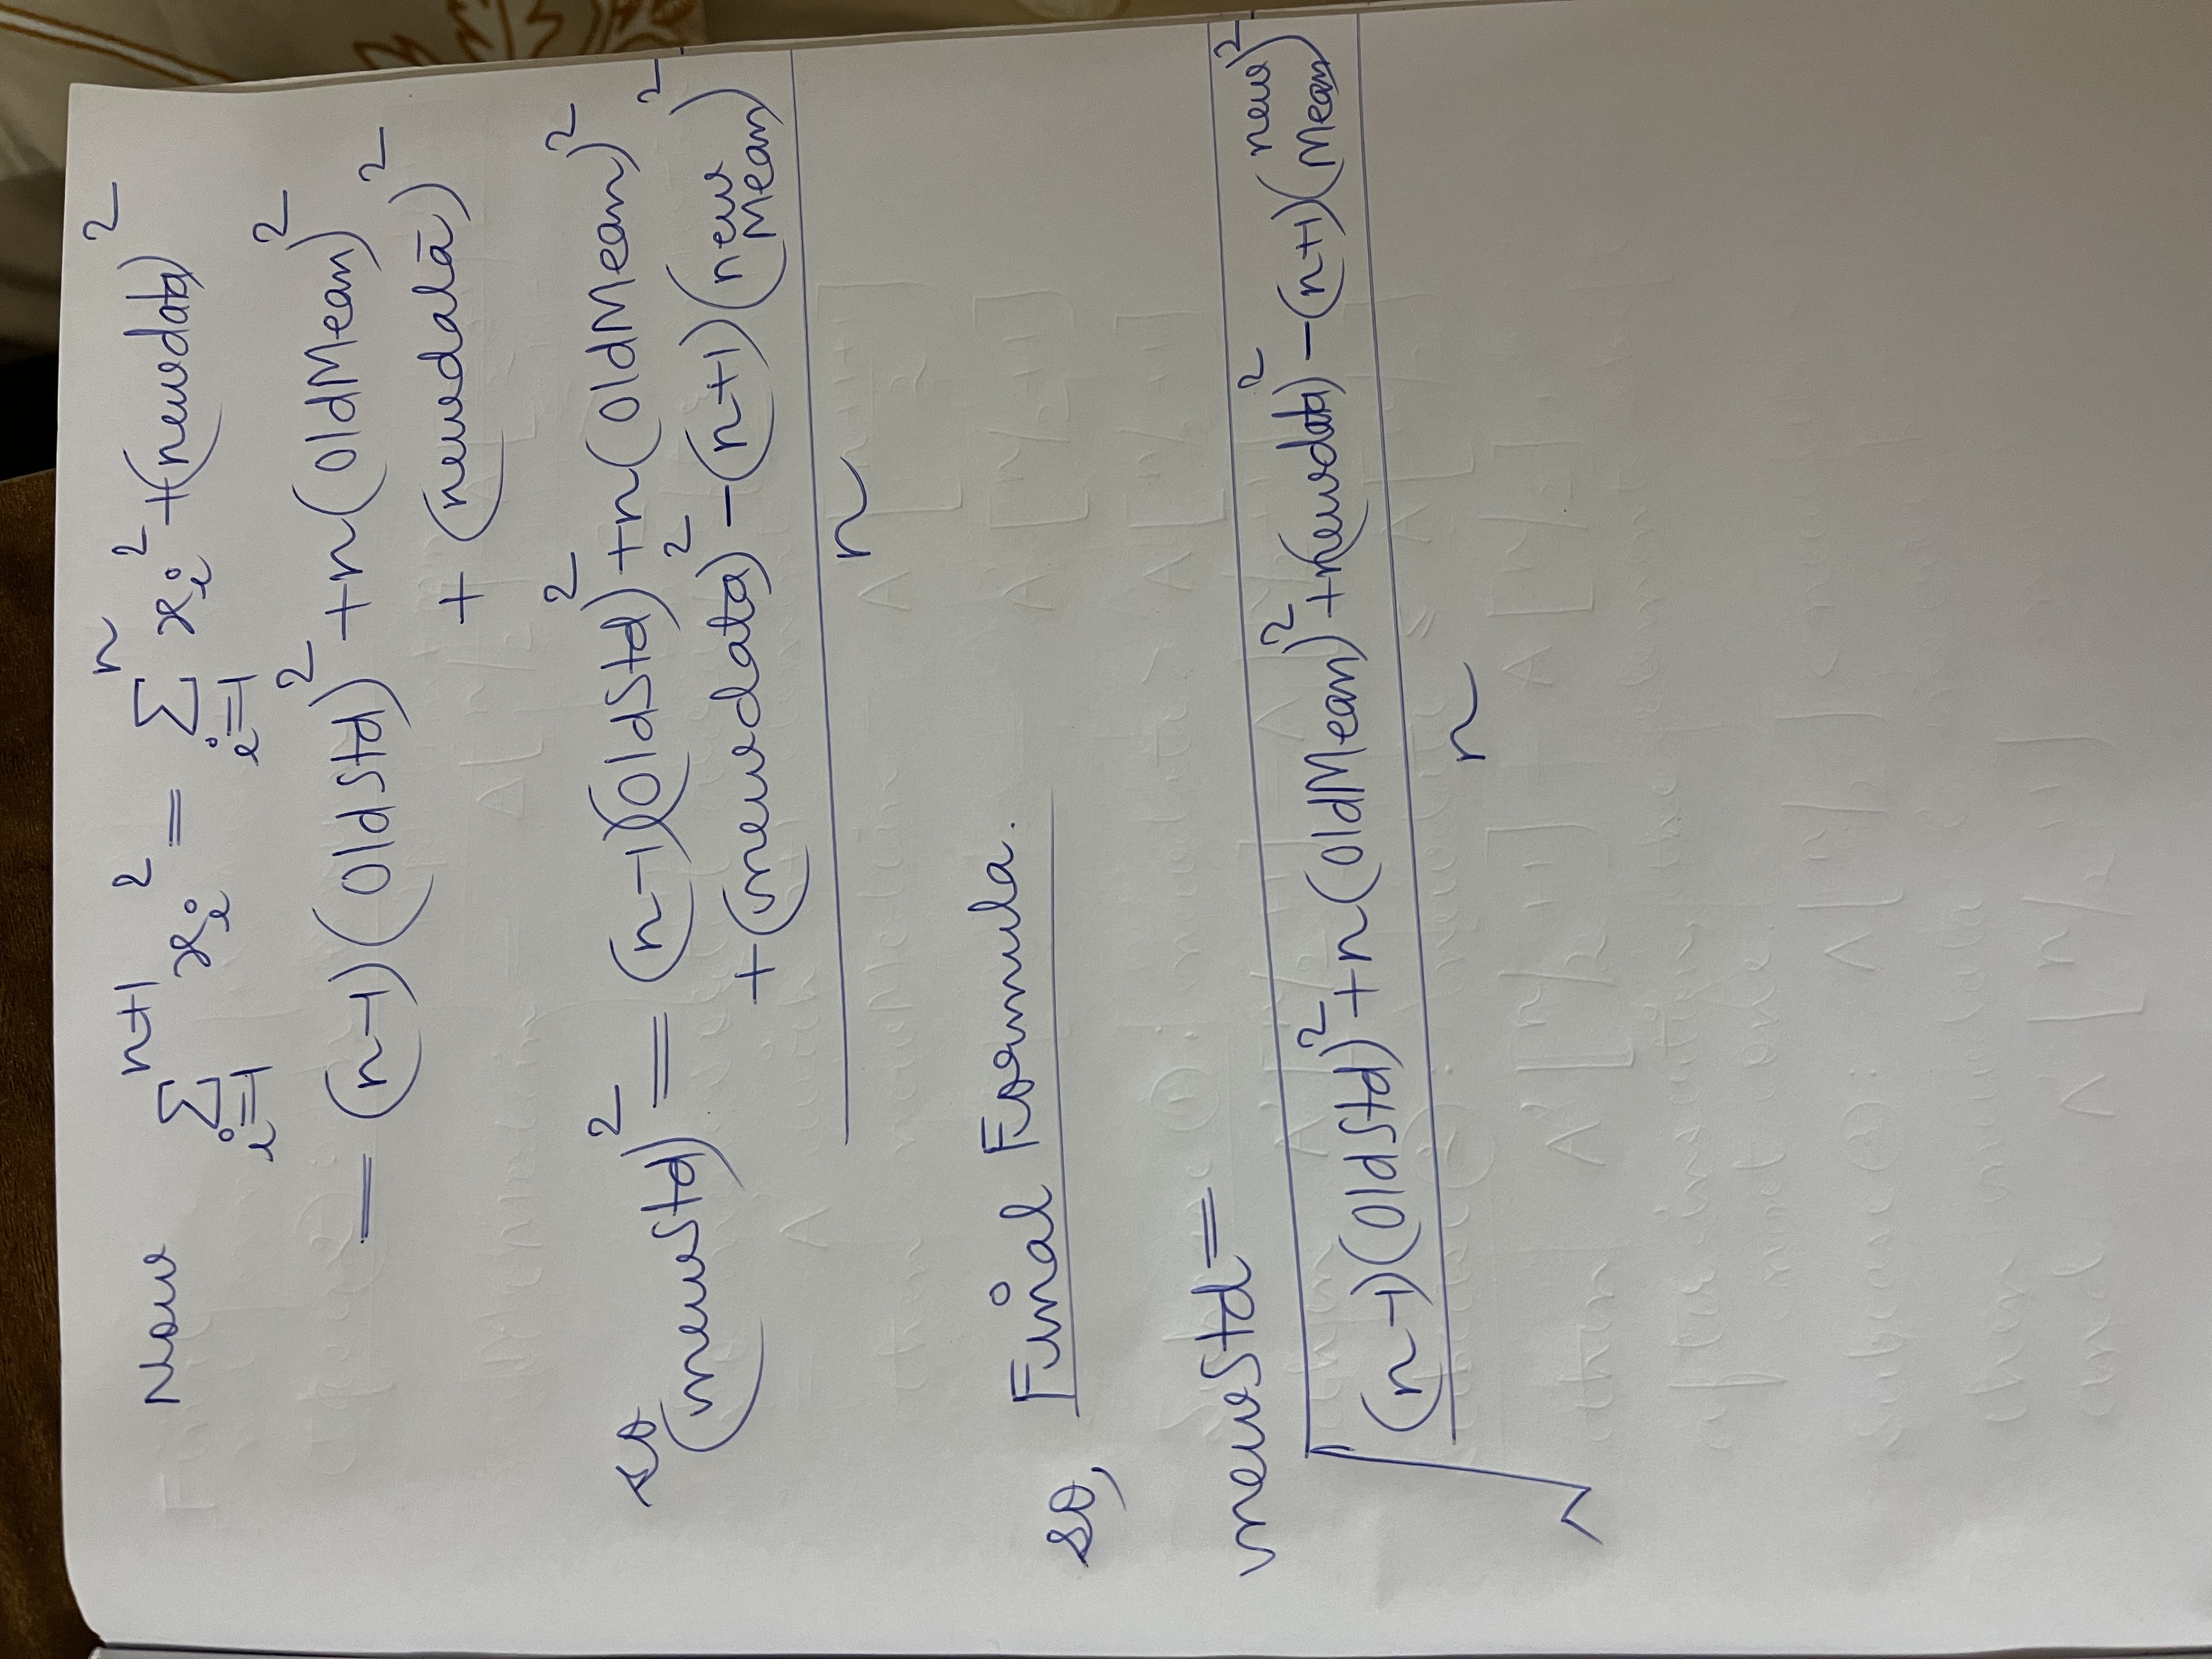 Now \sum_{i=1}^{n+1} x_i^2 = \sum_{i=1}^{n} x_i^2 + (newdata)^2
= (n-1)(OldStd)^2 + n(OldMean)^2
+ (newdata)^2
so
(newStd)^2 = (n-1)(OldStd)^2 + n(OldMean)^2
+ (newdata)^2 - (n+1)(new Mean)^2
n
so, Final Formula.
newStd =
\sqrt{\frac{(n-1)(OldStd)^2 + n(OldMean)^2 + (newdata)^2 - (n+1)(new Mean)^2}{n}}